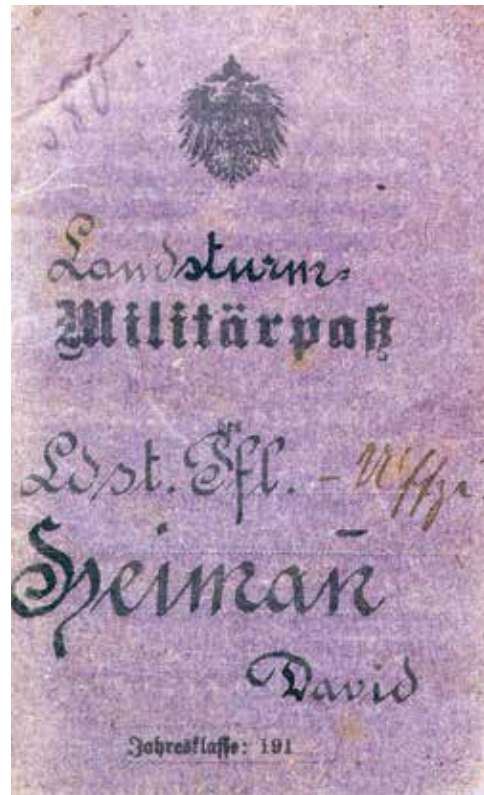 Landsturm-
Militärpaß
des
Ldst. Pfl. - Uffz.
Heiman̄
David
Jahresklasse: 191